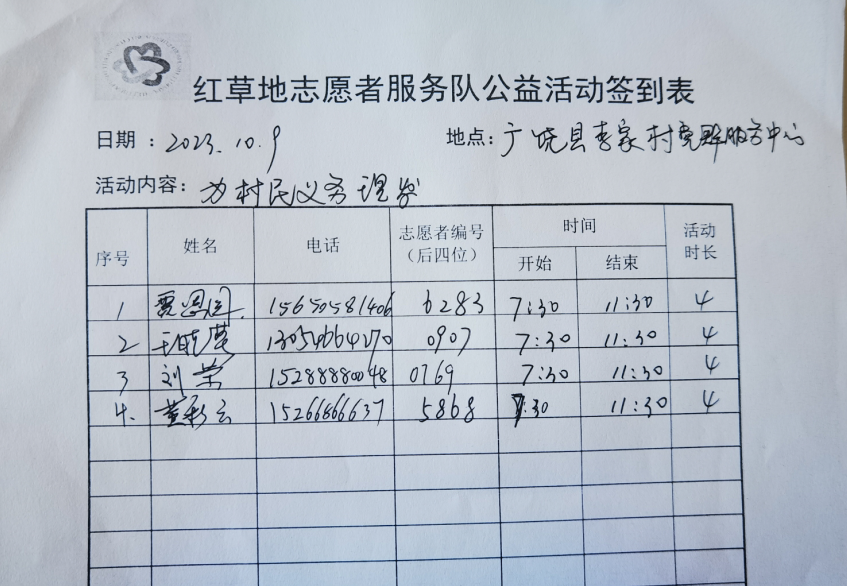 红草地志愿者服务队公益活动签到表
日期：2023.10.9 地点：广饶县李家村党群服务中心
活动内容：为村民义务理发
序号 姓名 电话 志愿者编号（后四位） 时间 开始 结束 活动时长
1 15650581406 6283 7:30 11:30 4
2 王晓莺 13054664270 0907 7:30 11:30 4
3 刘荣 15288880048 0769 7:30 11:30 4
4. 董彩云 15266866637 5868 7:30 11:30 4